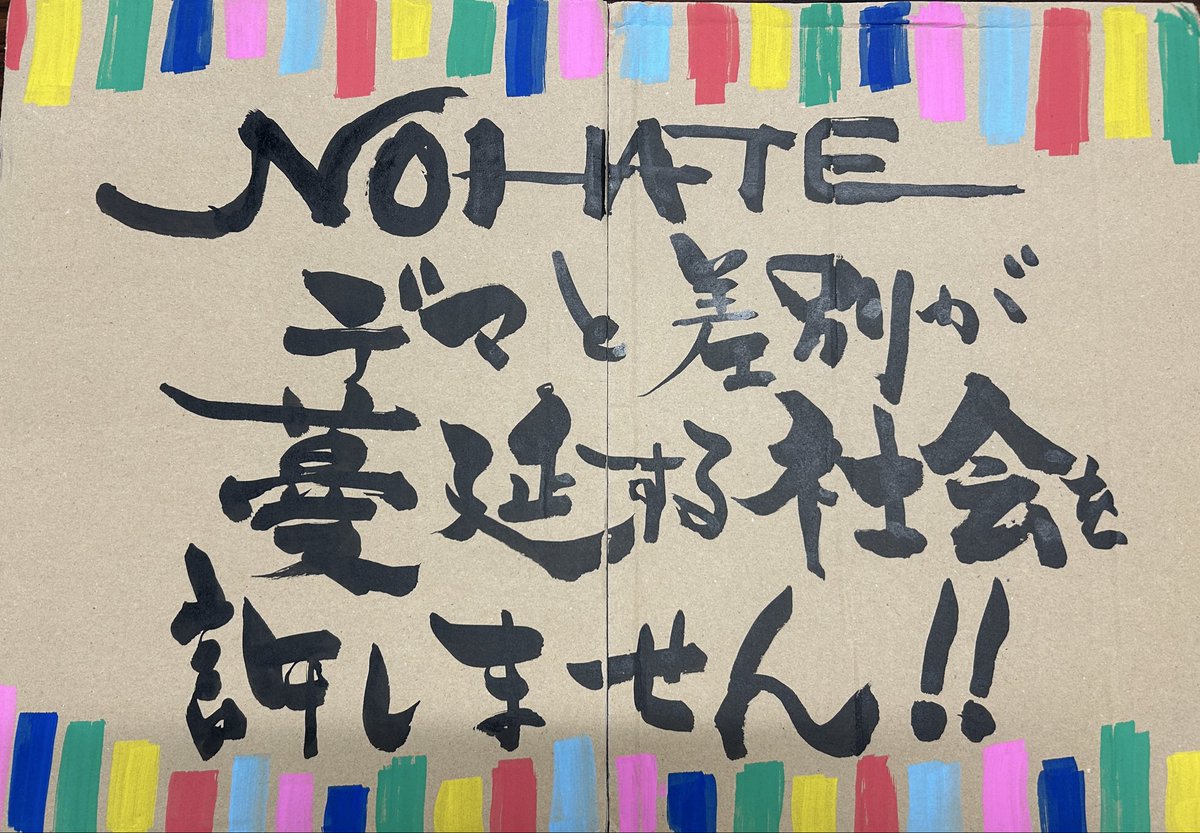 NO HATE
デマと差別が
蔓延する社会を
許しません!!